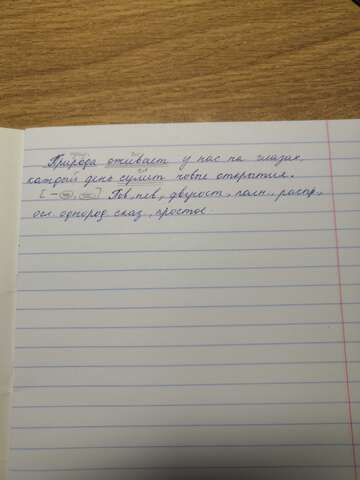 Природа оживает у нас на глазах,
каждый день сулит новые открытия.
[— =, =] Пов, нев, двусост, полн, распр,
осл однород сказ, простое.